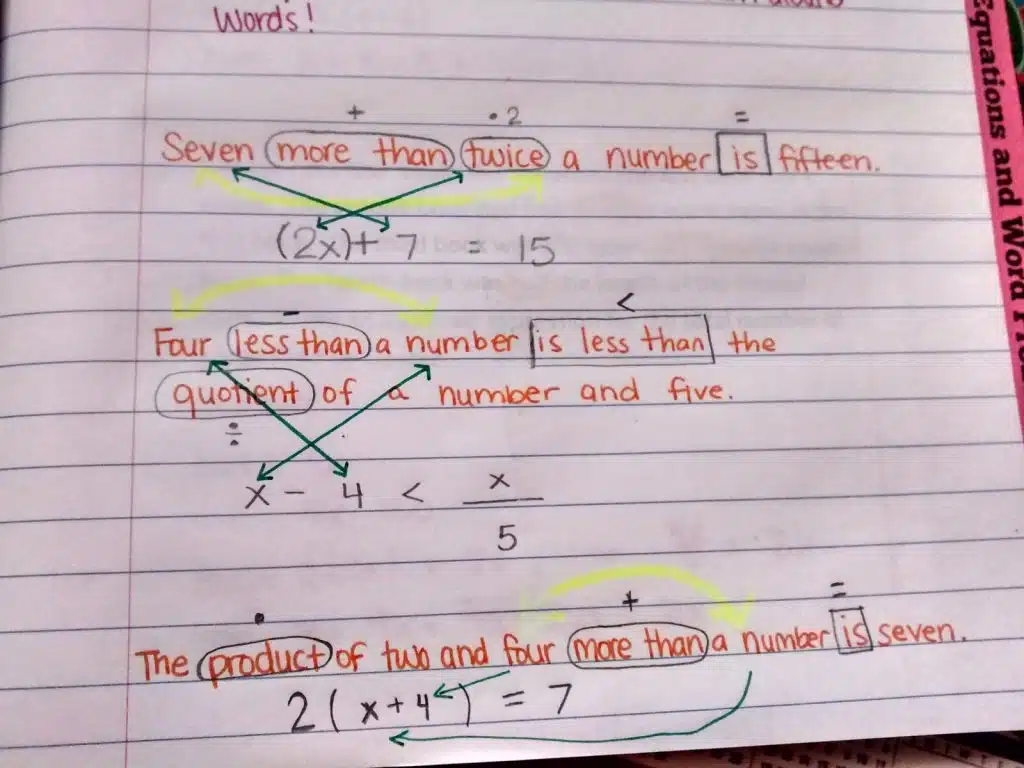 Words!
+ • 2 =
Seven more than twice a number is fifteen.
(2x)+ 7 = 15
- <
Four less than a number is less than the
quotient of a number and five.
÷
x - 4 < x
5
• + =
The product of two and four more than a number is seven.
2(x+4) = 7
Equations and Word